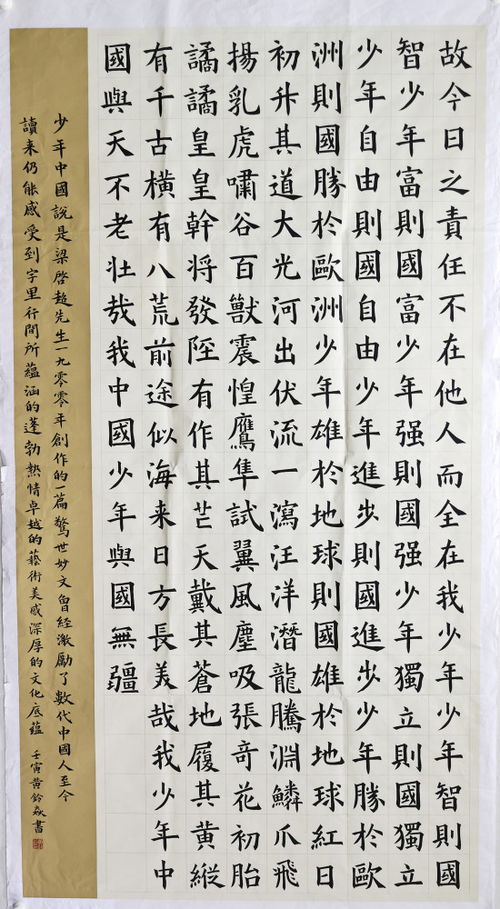 故今日之責任不在他人而全在我少年少年智則國
智少年富則國富少年强則國强少年獨立則國獨立
少年自由則國自由少年進步則國進步少年勝於歐
洲則國勝於歐洲少年雄於地球則國雄於地球紅日
初升其道大光河出伏流一瀉汪洋潛龍騰淵鱗爪飛
揚乳虎嘯谷百獸震惶鷹隼試翼風塵吸張奇花初胎
譎譎皇皇幹將發陘有作其芒天戴其蒼地履其黄縱
有千古横有八荒前途似海来日方長美哉我少年中
國與天不老壯哉我中國少年與國無疆
少年中國說是梁啓超先生一九零零年創作的一篇驚世妙文曾經激勵了數代中國人至今
讀来仍能感受到字里行間所蘊涵的蓬勃熱情卓越的藝術美感深厚的文化底蘊 壬寅黄鈴焱書